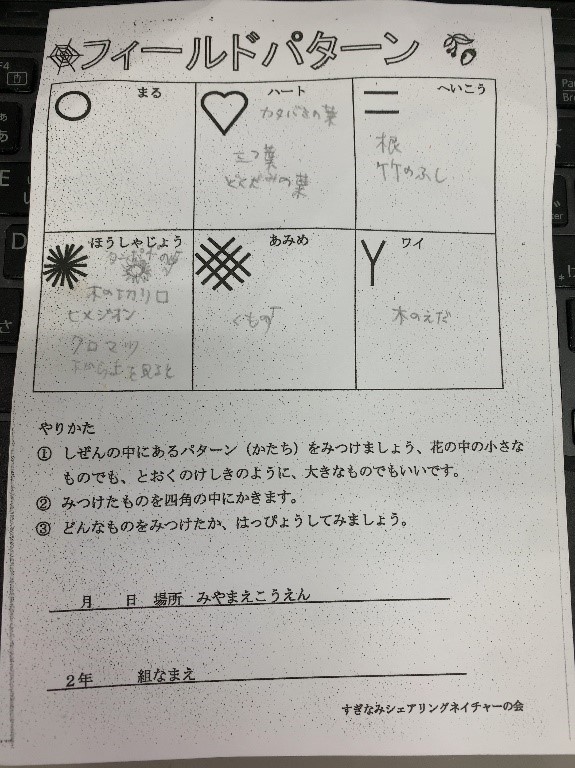 フィールドパターン
まる
ハート
カタバミの葉
三つ葉
どくだみの葉
へいこう
根
竹のふし
ほうしゃじょう
木の切り口
ヒメジオン
クロマツ
下から上を見ると
あみめ
くものす
ワイ
木のえだ
やりかた
① しぜんの中にあるパターン(かたち)をみつけましょう、花の中の小さな
ものでも、とおくのけしきのように、大きなものでもいいです。
② みつけたものを四角の中にかきます。
③ どんなものをみつけたか、はっぴょうしてみましょう。
月 日 場所 みやまえこうえん
2年 組なまえ
すぎなみシェアリングネイチャーの会